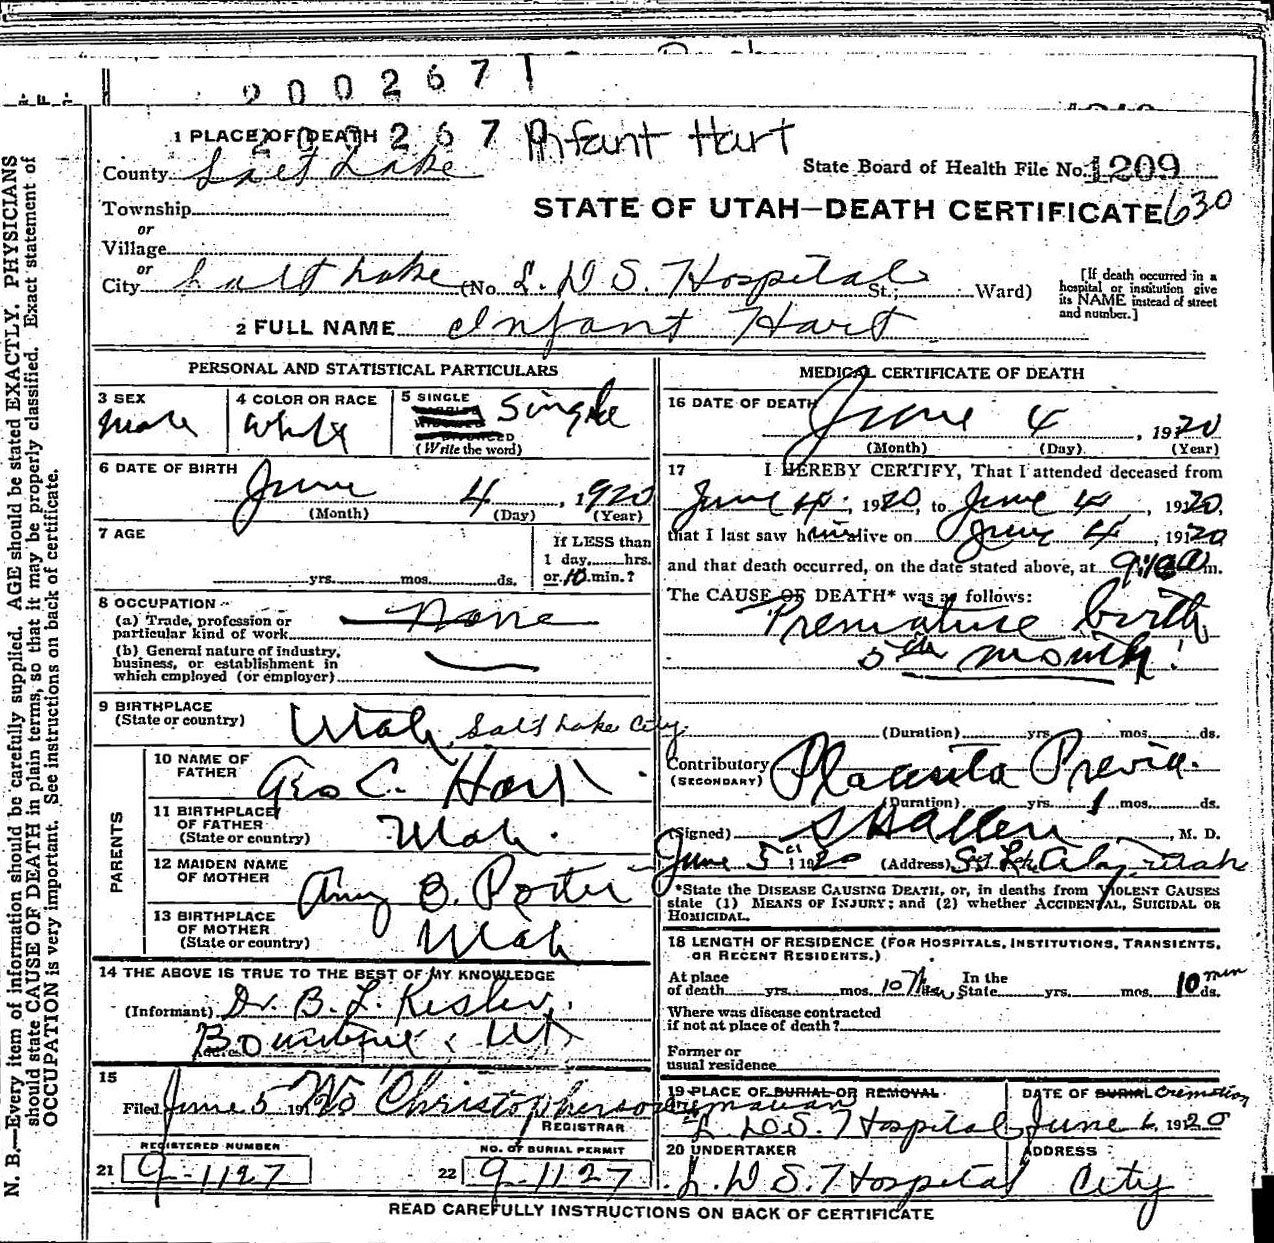 2 0 0 2 6 7 1
1 PLACE OF DEATH 2 0 0 2 6 7 Infant Hart
County Salt Lake State Board of Health File No. 1209
Township
or
STATE OF UTAH—DEATH CERTIFICATE 630
Village
or
City Salt Lake (No. L. D S. Hospital St.; Ward)
[If death occurred in a
hospital or institution give
its NAME instead of street
and number.]
2 FULL NAME Infant Hart
PERSONAL AND STATISTICAL PARTICULARS
3 SEX Male
4 COLOR OR RACE White
5 SINGLE Single
(Write the word)
6 DATE OF BIRTH
June 4, 1920
(Month) (Day) (Year)
7 AGE
yrs. mos. ds.
If LESS than
1 day, hrs.
or 10 min.?
8 OCCUPATION
(a) Trade, profession or
particular kind of work None
(b) General nature of industry,
business, or establishment in
which employed (or employer)
9 BIRTHPLACE
(State or country) Utah, Salt Lake City
PARENTS
10 NAME OF
FATHER Geo C. Hart
11 BIRTHPLACE
OF FATHER
(State or country) Utah.
12 MAIDEN NAME
OF MOTHER Amy B. Porter
13 BIRTHPLACE
OF MOTHER
(State or country) Utah
14 THE ABOVE IS TRUE TO THE BEST OF MY KNOWLEDGE
(Informant) Dr. B. L. Kesler,
Bountiful, Ut
15
Filed June 5 1920 Christopherson
REGISTRAR
REGISTERED NUMBER
21 9-1127
NO. OF BURIAL PERMIT
22 9-1127
MEDICAL CERTIFICATE OF DEATH
16 DATE OF DEATH
June 4, 1920
(Month) (Day) (Year)
17 I HEREBY CERTIFY, That I attended deceased from
June 4, 1920, to June 4, 1920,
that I last saw him alive on June 4, 1920
and that death occurred, on the date stated above, at 9:10 a m.
The CAUSE OF DEATH* was as follows:
Premature birth
5th month!
(Duration) yrs. mos. ds.
Contributory Placenta Previa.
(SECONDARY)
(Duration) yrs. 1 mos. ds.
(Signed) S H Allen, M. D.
June 5 1920 (Address) Salt Lake City, Utah
*State the DISEASE CAUSING DEATH, or, in deaths from VIOLENT CAUSES
state (1) MEANS OF INJURY; and (2) whether ACCIDENTAL, SUICIDAL OR
HOMICIDAL.
18 LENGTH OF RESIDENCE (FOR HOSPITALS, INSTITUTIONS, TRANSIENTS,
OR RECENT RESIDENTS.)
At place
of death yrs. mos. 10 Min In the
State yrs. mos. 10 min ds.
Where was disease contracted
if not at place of death?
Former or
usual residence
19 PLACE OF BURIAL OR REMOVAL
L. D. S. Hospital
DATE OF BURIAL Cremation
June 6, 1920
20 UNDERTAKER
L. D S. Hospital
ADDRESS
City
READ CAREFULLY INSTRUCTIONS ON BACK OF CERTIFICATE
N. B.—Every item of information should be carefully supplied. AGE should be stated EXACTLY. PHYSICIANS
should state CAUSE OF DEATH in plain terms, so that it may be properly classified. Exact statement of
OCCUPATION is very important. See instructions on back of certificate.